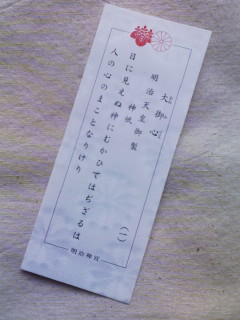 大御心
おおみごころ
明治天皇御製
(一)
神祇
目に見えぬ神にむかひてはぢざるは
人の心のまことなりけり
明治神宮